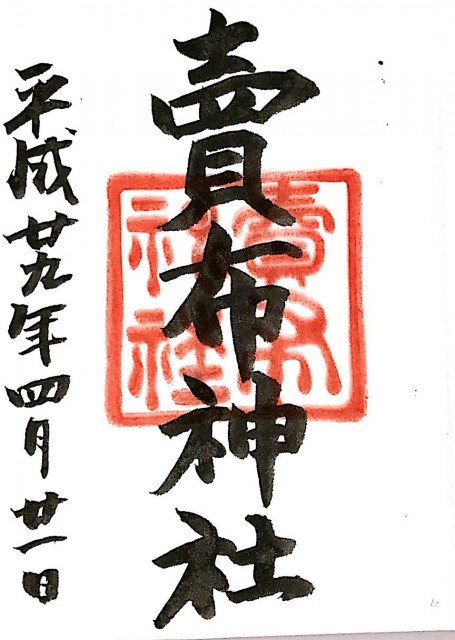 賣布神社
平成廿九年四月廿一日
賣布
神社